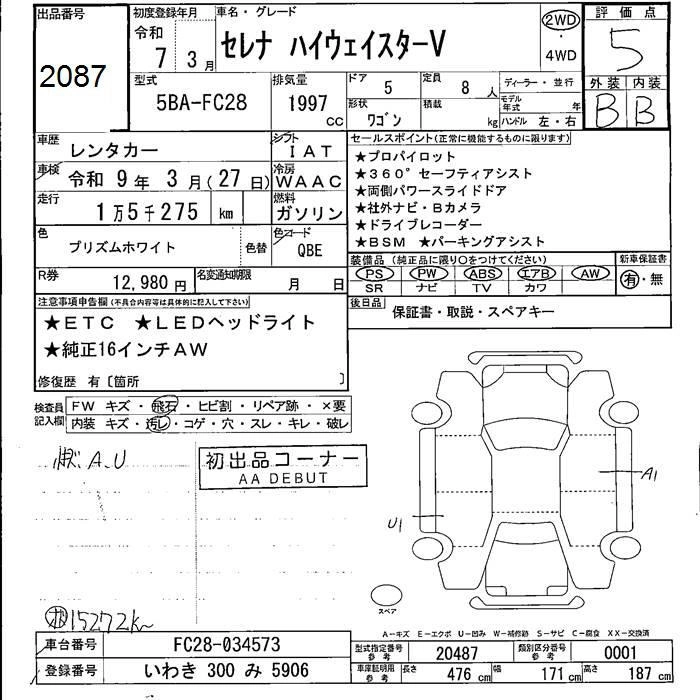 出品番号
2087
初度登録年月
令和
7 3月
車名・グレード
セレナ ハイウェイスターV
2WD
・
4WD
評価点
5
外装 内装
B B
型式
5BA-FC28
排気量
1997 cc
ドア
5
定員
8 人
形状
ワゴン
積載
kg
ディーラー・並行
モデル年式 年
ハンドル 左・右
車歴
レンタカー
シフト
IAT
車検
令和 9年 3月(27日)
冷房
WAAC
走行
1万5千275 km
燃料
ガソリン
色
プリズムホワイト
色替
色コード
QBE
R券
12,980 円
名変通知期限
月 日
セールスポイント(正常に機能するものに限ります)
★プロパイロット
★360°セーフティアシスト
★両側パワースライドドア
★社外ナビ・Bカメラ
★ドライブレコーダー
★BSM ★パーキングアシスト
装備品(純正品に限り○をつけてください)
PS PW ABS エアB AW
SR ナビ TV カワ
新車保証書
有・無
後日品
保証書・取説・スペアキー
注意事項申告欄(不具合内容等は具体的に記入して下さい)
★ETC ★LEDヘッドライト
★純正16インチAW
修復歴 有〔箇所 〕
検査員記入欄
FW キズ・飛石・ヒビ割・リペア跡・×要
内装 キズ・汚し・コゲ・穴・スレ・キレ・破レ
A.U
初出品コーナー
AA DEBUT
A1
U1
スペア
15272km
A-キズ E-エクボ U-凹み W-補修跡 S-サビ C-腐食 XX-交換済
車台番号
FC28-034573
登録番号
いわき 300 み 5906
型式指定番号
参考
20487
類別区分番号
参考
0001
車庫証明用
参考
長さ 476 cm 幅 171 cm 高さ 187 cm